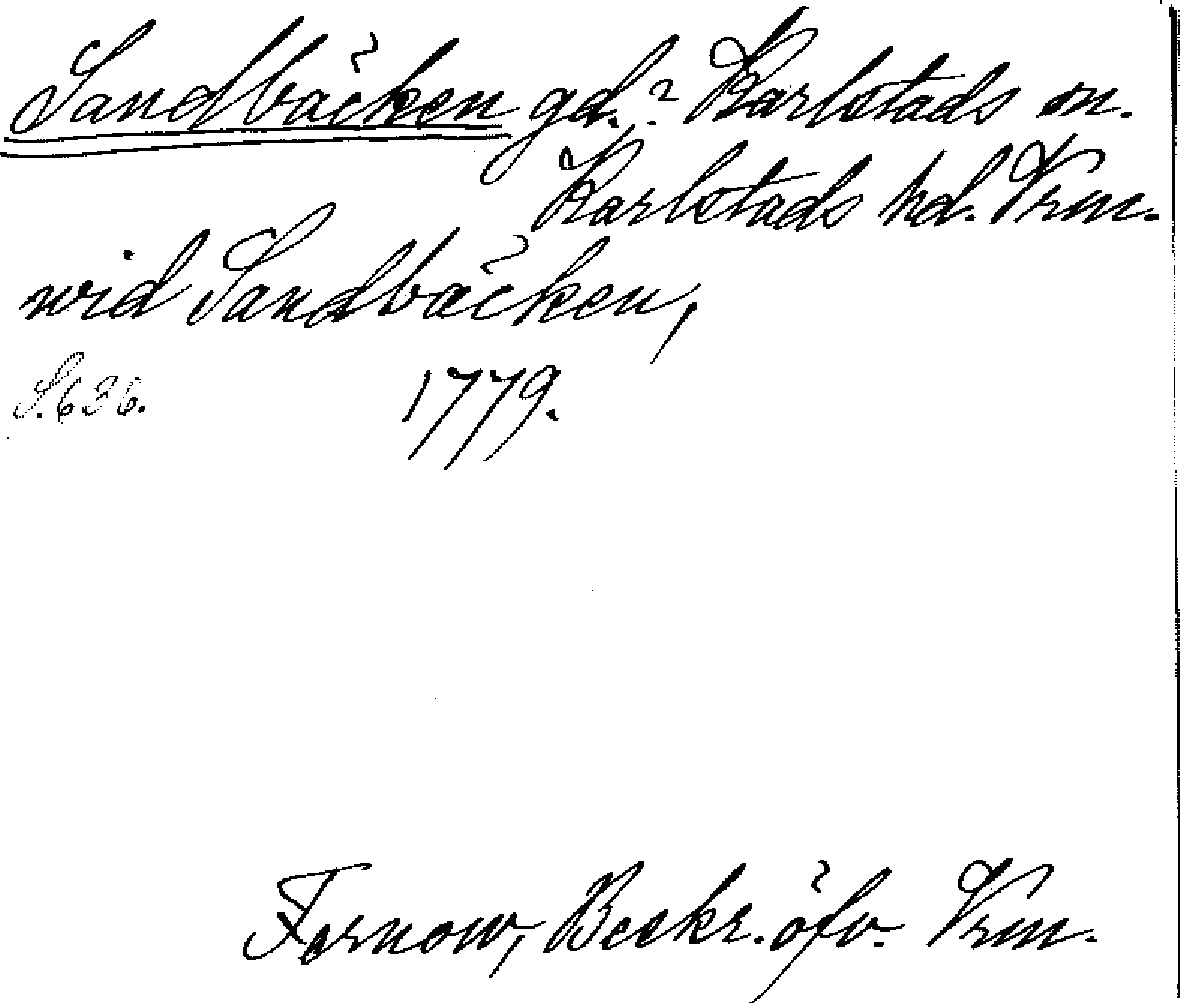 Sandbäcken gd.? Karlstads sn.
Karlstads hd. Vrm.
wid Sandbäcken,
S. 636. 1779.
Fernow, Beskr. öfv. Vrm.